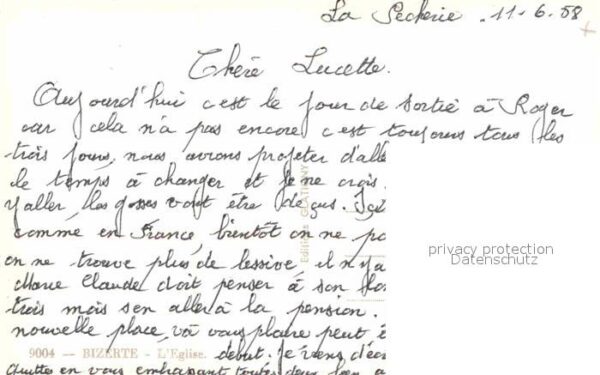 La Pecherie . 11-6.58
Chère Lucette.
Aujourd'hui c'est le jour de sortie à Roger
car cela n'a pas encore c'est toujours tous les
trois jours, nous avrons projeter d'alle
le temps à changer et je ne crois
y aller, les gosses vont être deçus. Ici
comme en France, bientôt on ne po
on ne trouve plus de lessive, il n'y a
Marie Claude doit penser à son
trois mois s'en aller à la pension.
nouvelle place, va vous plaire peut ê
début. Je viens d'éc
quittes en vous embrassant toutes deux bien
9004 — BIZERTE - L'Eglise.
Editions GLATIGNY
privacy protection
Datenschutz